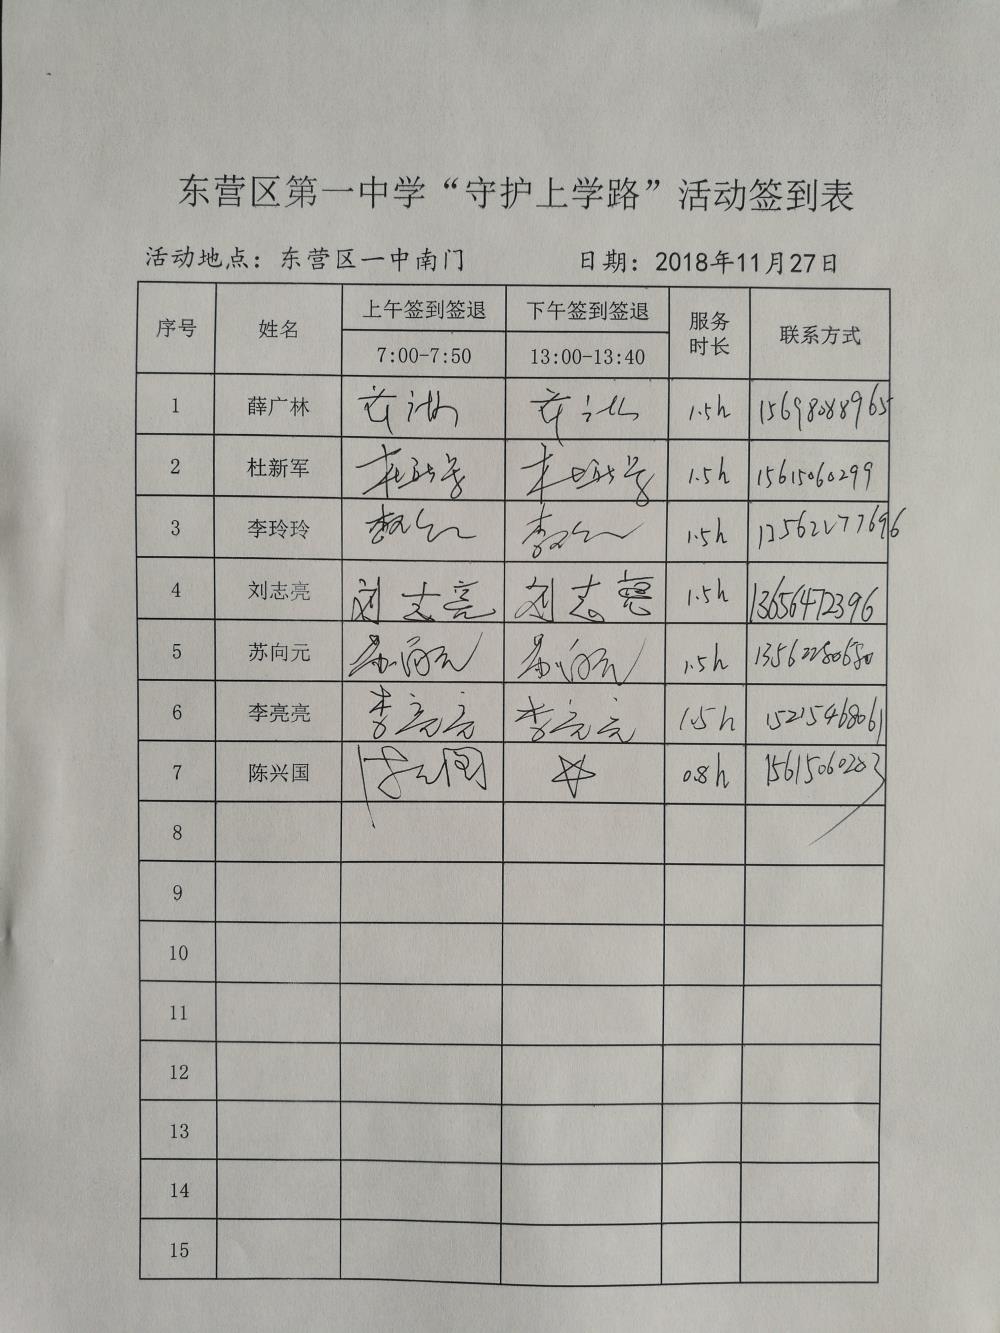 东营区第一中学“守护上学路”活动签到表
活动地点：东营区一中南门 日期：2018年11月27日
序号 姓名 上午签到签退 下午签到签退 服务时长 联系方式
7:00-7:50 13:00-13:40
1 薛广林 1.5h 15698088965
2 杜新军 杜新军 杜新军 1.5h 15615060299
3 李玲玲 1.5h 13562177696
4 刘志亮 刘志亮 刘志亮 1.5h 13656472396
5 苏向元 苏向元 苏向元 1.5h 13562280680
6 李亮亮 李亮亮 李亮亮 1.5h 15215468061
7 陈兴国 陈兴国 0.8h 15615060283
8
9
10
11
12
13
14
15